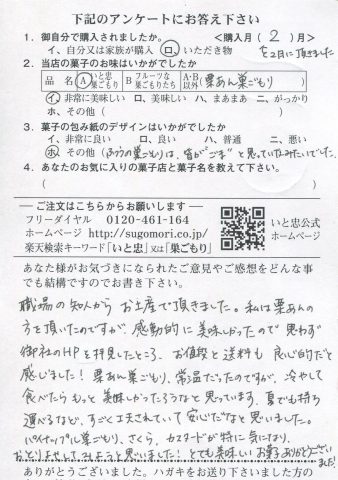 下記のアンケートにお答え下さい
1. 御自分で購入されましたか。 <購入月( 2 )月>
イ、自分又は家族が購入 ロ、いただき物 を2日に頂きました
2. 当店の菓子のお味はいかがでしたか
品 名 A いと忠巣ごもり B フルーツな巣ごもりたち A・B以外(栗あん巣ごもり)
イ、非常に美味しい ロ、美味しい ハ、まあまあ ニ、がっかり
ホ、その他( )
3. 菓子の包み紙のデザインはいかがでしたか
イ、非常に良い ロ、良い ハ、普通 ニ、悪い
ホ、その他(ふつうの巣ごもりは、皆が"ごま"と思っていたみたいでした。)
4. あなたのお気に入りの菓子店と菓子名を教えて下さい。
( )
―ご注文はこちらからお願いします―
フリーダイヤル 0120-461-164
ホームページ http://sugomori.co.jp/
楽天検索キーワード「いと忠」又は「巣ごもり」
いと忠公式
ホームページ
あなた様がお気づきになられたご意見やご感想をどんな事
でも結構ですのでお書き下さい。
職場の知人からお土産で頂きました。私は栗あんの
方を頂いたのですが、感動的に美味しかったので思わず
御社のHPを拝見したところ、お値段と送料も良心的だと
感じました!栗あん巣ごもり、常温だったのですが、冷やして
食べたらもっと美味しかっただろうなと思っています。夏でも持ち
運べるなど、すごく工夫されていて安心だなと思いました。
パイナップル巣ごもり、さくら、カスタードが特に気になり、
おとりよせしてみようと思いました!とても美味しいお菓子ありがとうございました!
ありがとうございました。ハガキをお送り下さいました方の